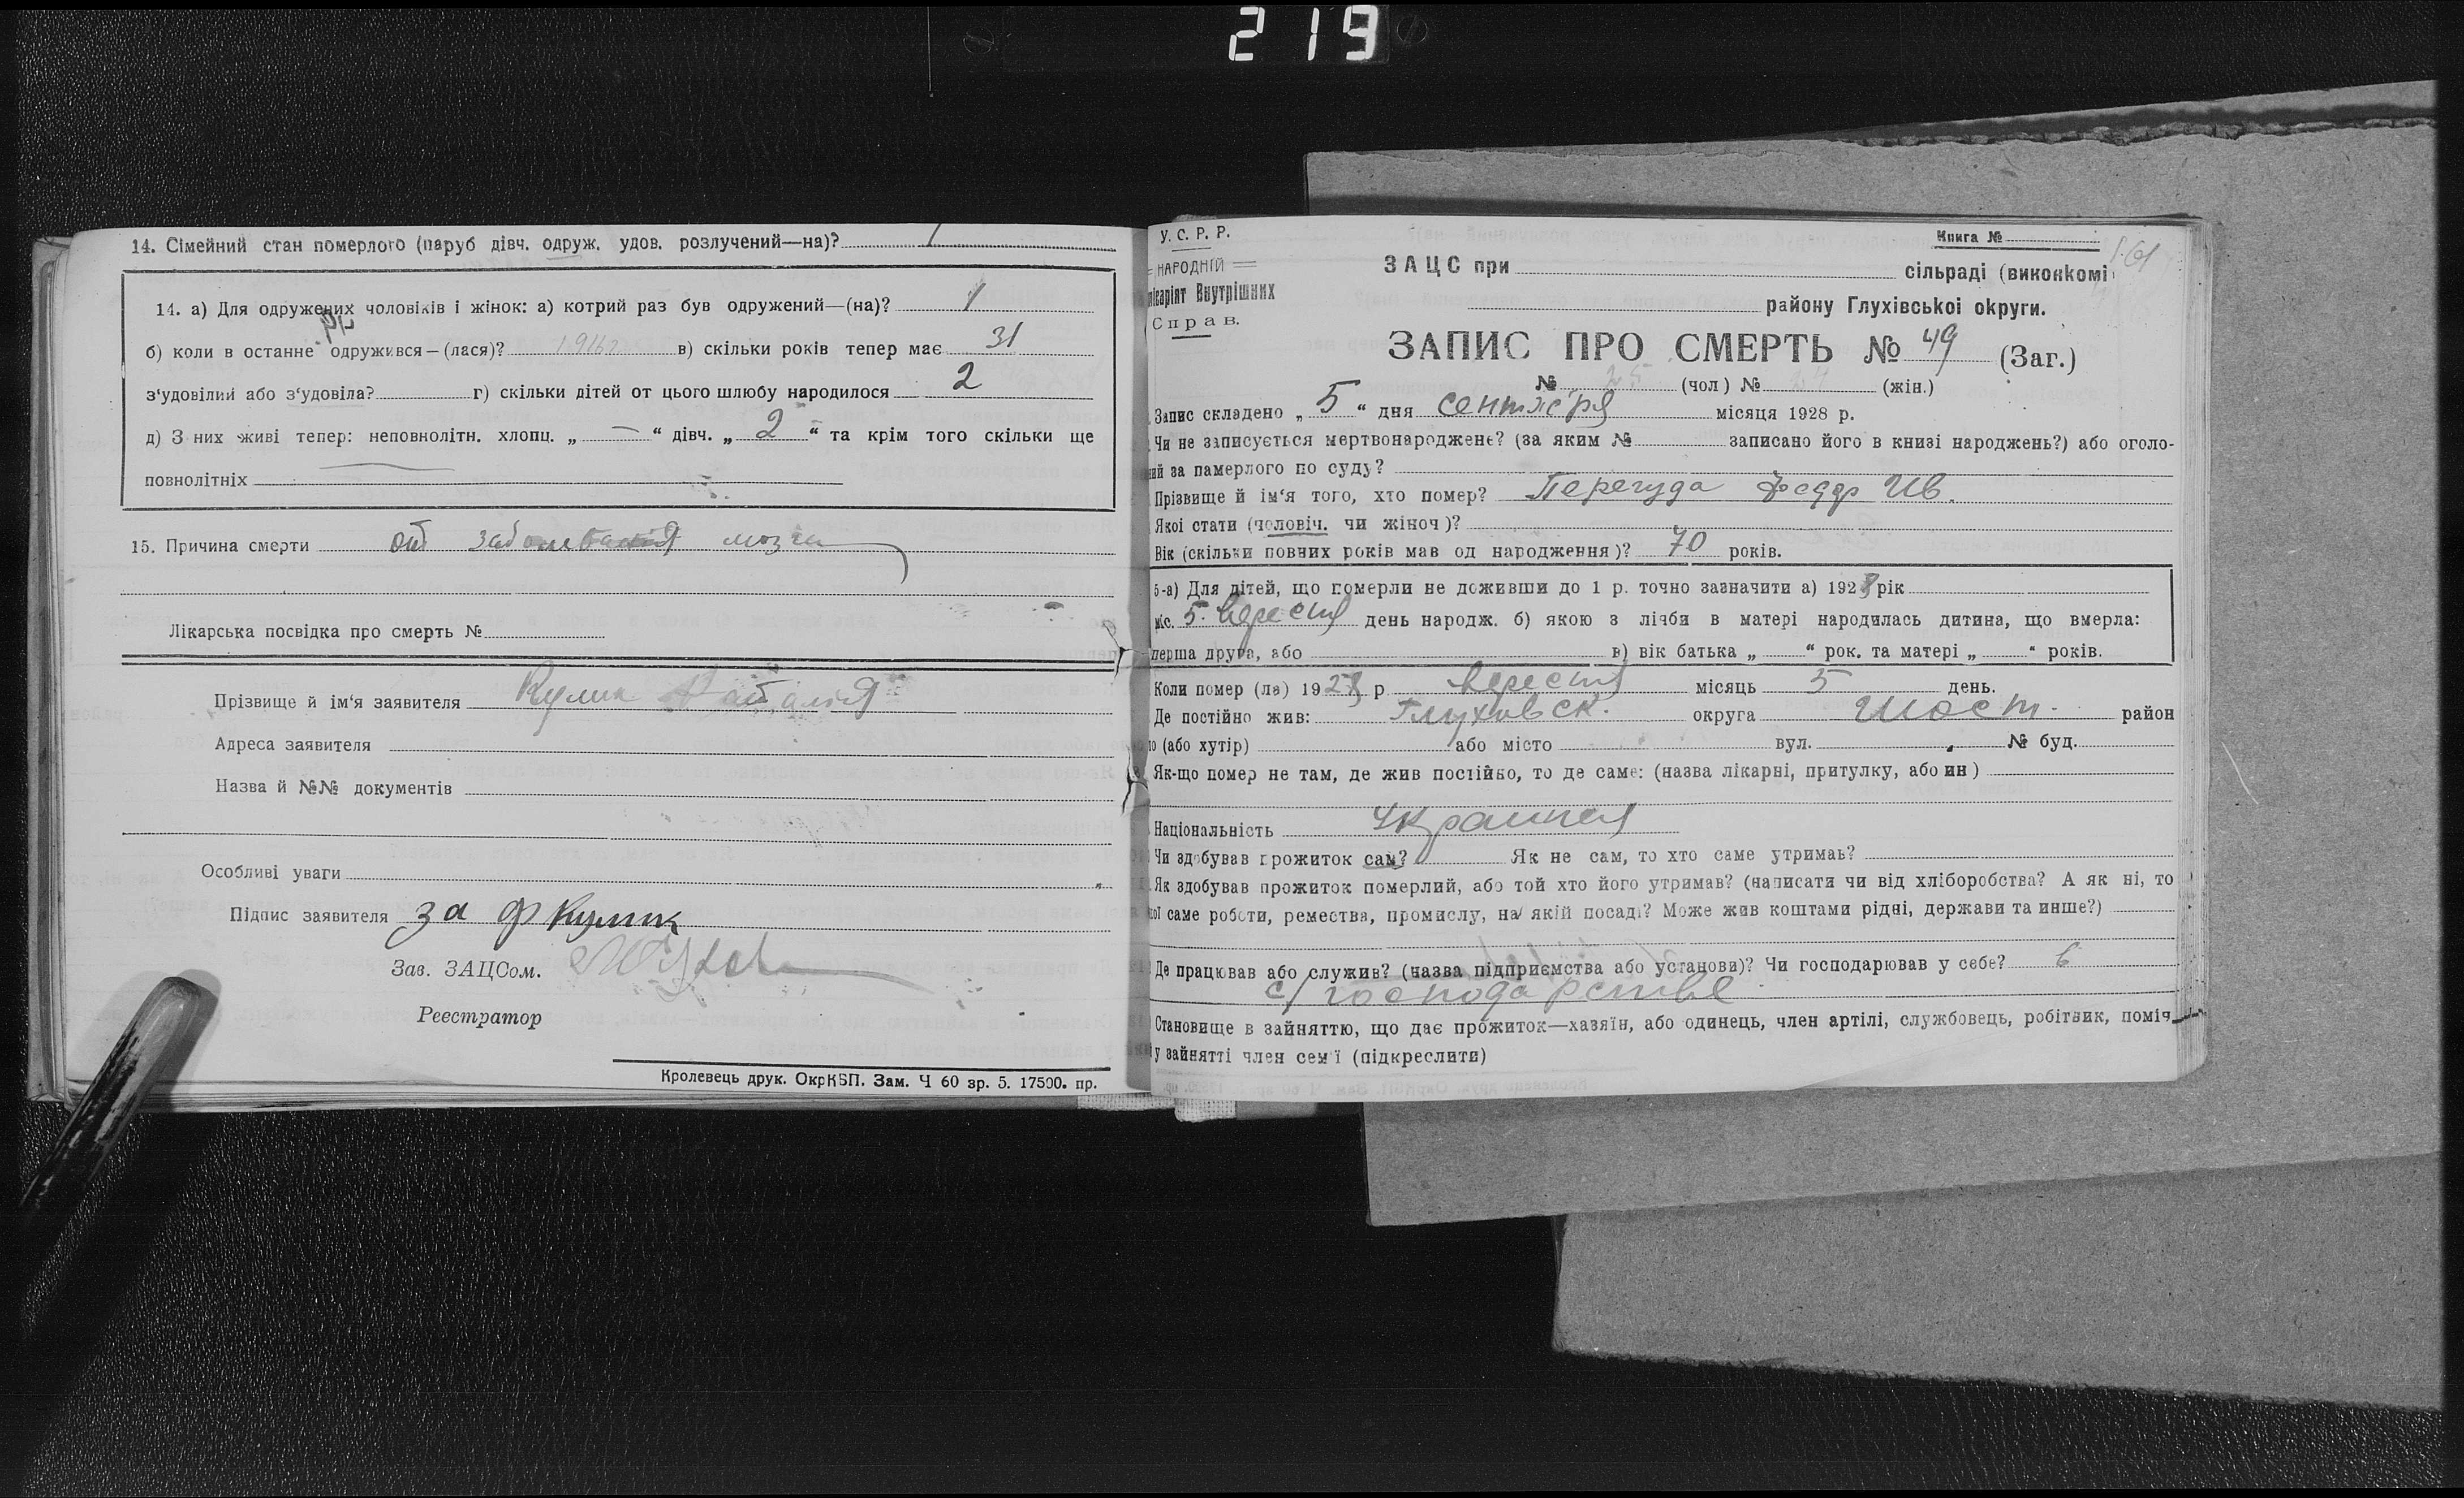 219
14. Сімейний стан померлого (паруб дівч. одруж. удов. розлучений—на)?
14. а) Для одружених чоловіків і жінок: а) котрий раз був одружений—(на)? 1
б) коли в останнє одружився—(лася)? 1916 в) скільки років тепер має 31
з'удовілий або з'удовіла? г) скільки дітей от цього шлюбу народилося 2
д) З них живі тепер: неповнолітн. хлопц. „ — “ дівч. „ 2 “ та крім того скільки ще
повнолітніх
15. Причина смерти от заболевания мозга
Лікарська посвідка про смерть №
Прізвище й ім'я заявителя Кулик Наталія
Адреса заявителя
Назва й №№ документів
Особливі уваги
Підпис заявителя за Ф Кулик
Зав. ЗАЦСом.
Реестратор
Кролевець друк. ОкрКВП. Зам. Ч 60 зр. 5. 17500. пр.
У. С. Р. Р.
НАРОДНІЙ
Внутрішних
Справ.
Книга №
ЗАЦС при сільраді (виконкомі
району Глухівськоі округи.
ЗАПИС ПРО СМЕРТЬ № 49 (Заг.)
№ 25 (чол) № 24 (жін.)
Запис складено „ 5 “ дня сентября місяця 1928 р.
Чи не записується мертвонароджене? (за яким № записано його в книзі народжень?) або оголо-
ий за памерлого по суду?
Прізвище й ім'я того, хто помер? Перегуда Федор Ив.
Якоі стати (чоловіч. чи жіноч)?
Вік (скільки повних років мав од народження)? 70 років.
5-а) Для дітей, що померли не доживши до 1 р. точно зазначити а) 1928 рік
міс. 5. вересня день народж. б) якою з лічби в матері народилась дитина, що вмерла:
перша друга, або в) вік батька „ “ рок. та матері „ “ років.
Коли помер (ла) 1928 р вересня місяць 5 день.
Де постійно жив: Глуховск. округа Шост. район
о (або хутір) або місто вул. № буд.
Як-що помер не там, де жив постійно, то де саме: (назва лікарні, притулку, або ин)
Національність Украинец
Чи здобував прожиток сам? Як не сам, то хто саме утримаь?
Як здобував прожиток померлий, або той хто його утримав? (написати чи від хліборобства? А як ні, то
саме роботи, ремества, промислу, на якій посаді? Може жив коштами рідні, держави та инше?)
Де працював або служив? (назва підприємства або установи)? Чи господарював у себе? в
с/господарстве
Становище в зайняттю, що дає прожиток—хазяїн, або одинець, член артілі, службовець, робітник, поміч
у зайнятті член сем'ї (підкреслити)